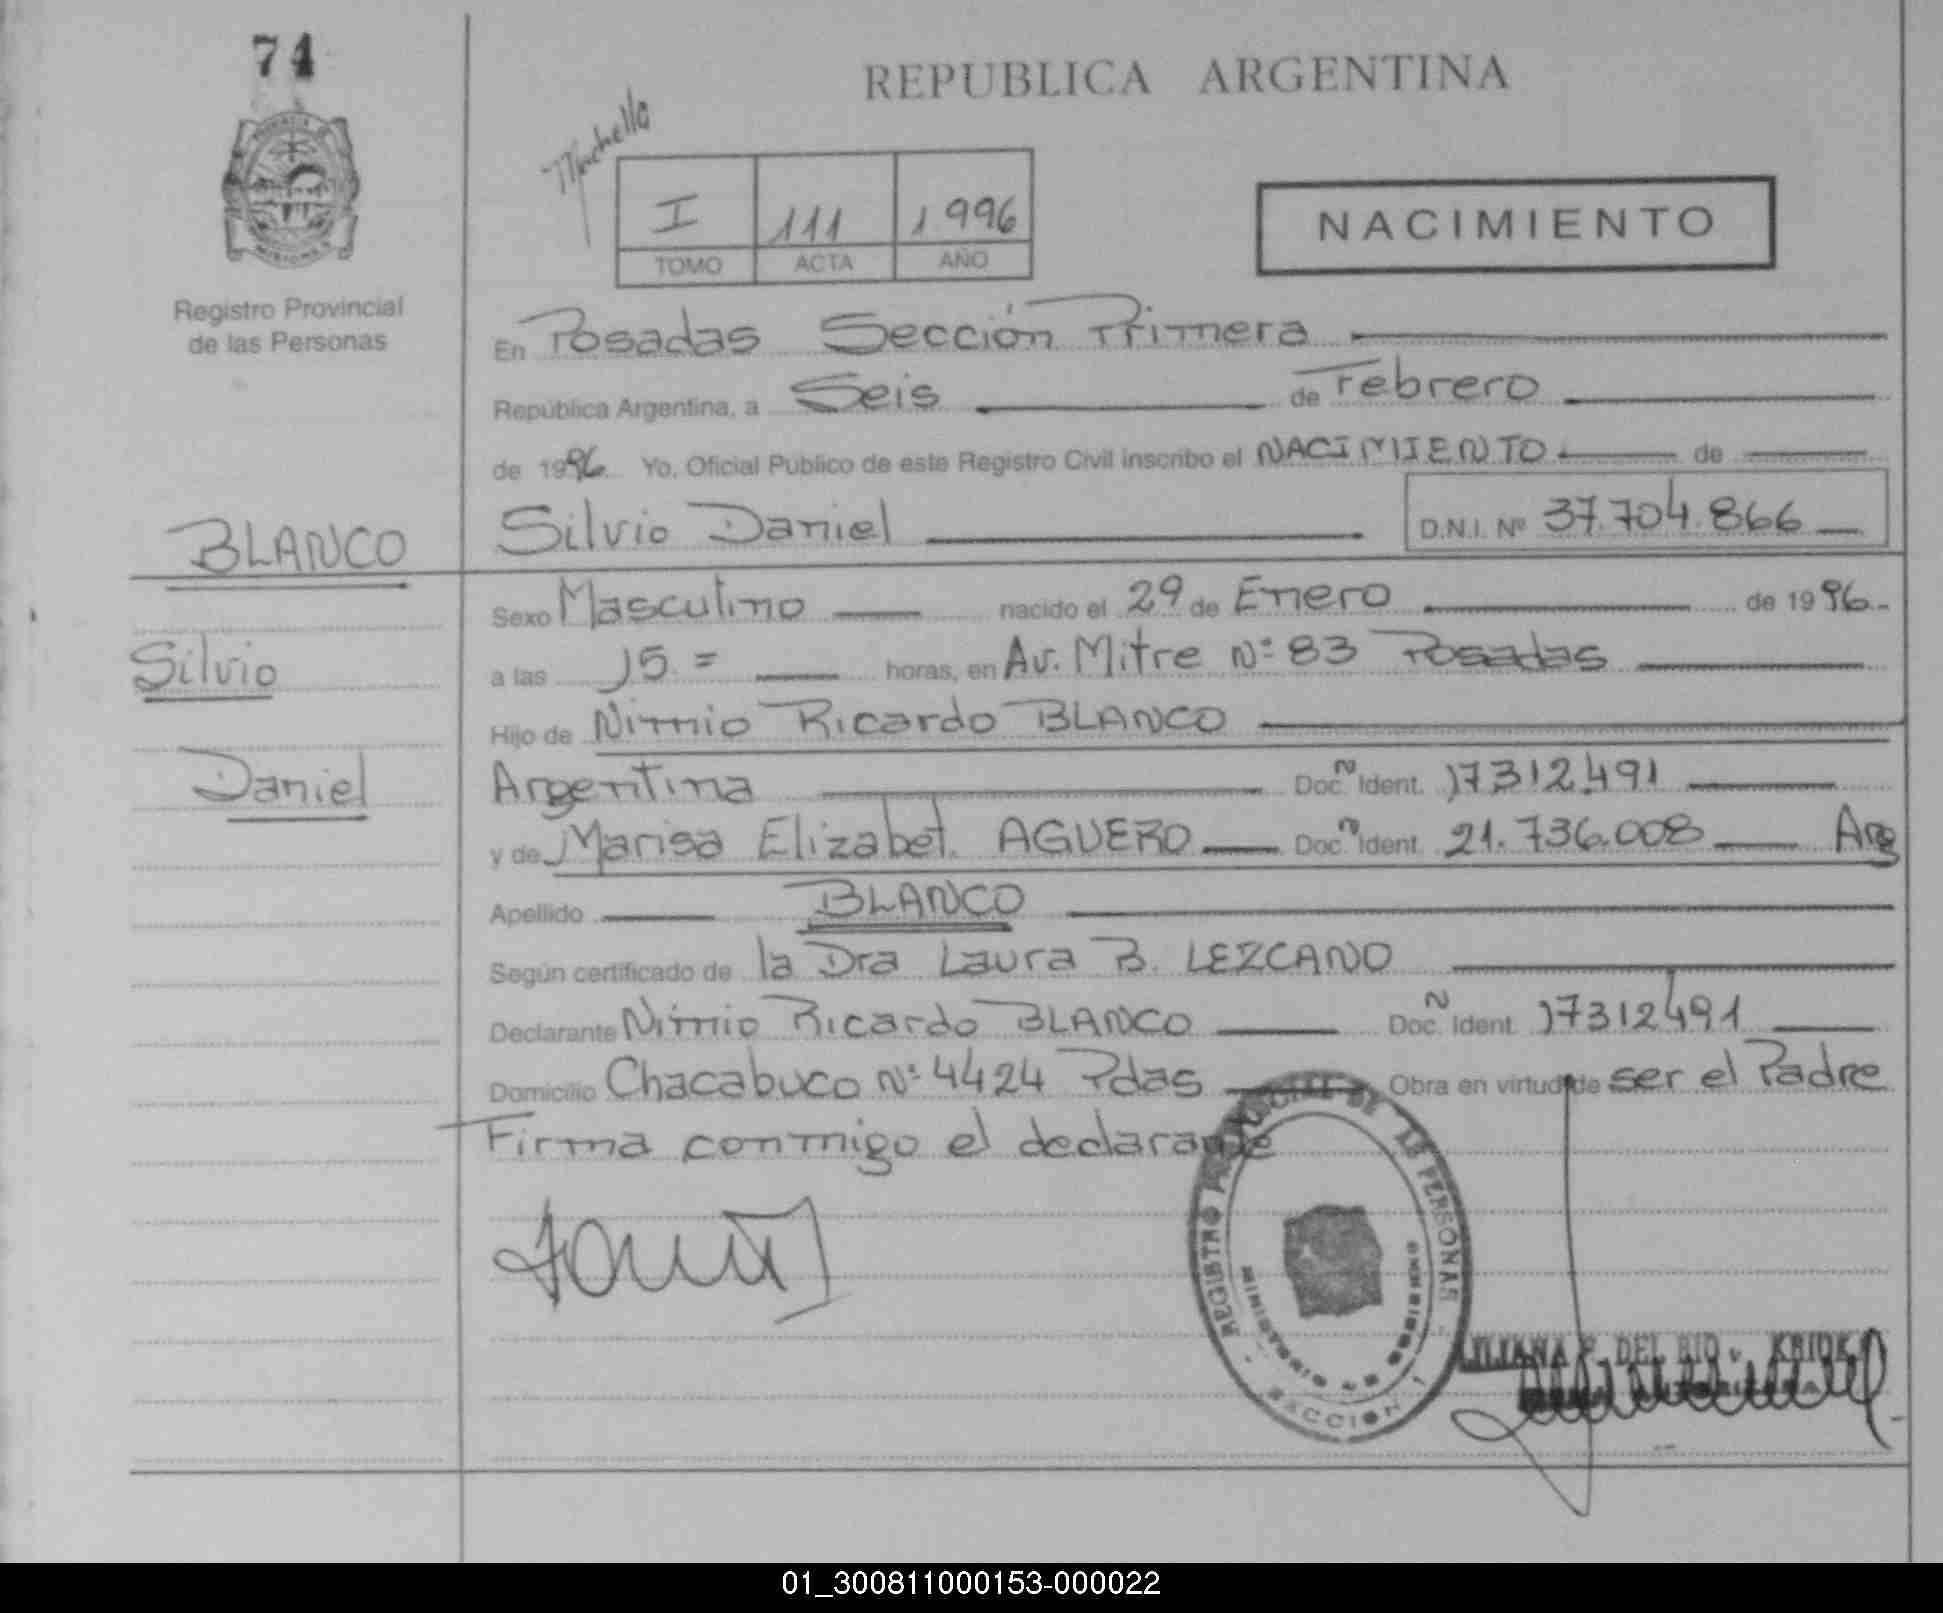 74
REPUBLICA ARGENTINA
I 111 1.996
TOMO ACTA AÑO
NACIMIENTO
Registro Provincial
de las Personas
En Posadas Sección Primera
República Argentina, a Seis de Febrero
de 1996. Yo, Oficial Público de este Registro Civil inscribo el NACIMIENTO de
BLANCO
Silvio Daniel D.N.I. Nº 37.704.866
Sexo Masculino nacido el 29 de Enero de 1996.
Silvio
a las 15.= horas, en Av. Mitre Nº 83 Posadas
Hijo de Nimio Ricardo BLANCO
Daniel
Argentina Doc. Ident. 17312.491
y de Marisa Elizabet. AGUERO Doc. Ident. 21.736.008 Arg
Apellido BLANCO
Según certificado de la Dra Laura B. LEZCANO
Declarante Nimio Ricardo BLANCO Doc. Ident. 17312491
Domicilio Chacabuco Nº 4424 Pdas Obra en virtud de ser el Padre
Firma conmigo el declarante
REGISTRO PROVINCIAL DE LAS PERSONAS
MINISTERIO DE GOBIERNO
SECCION 1
LILIANA DEL RIO
01_300811000153-000022